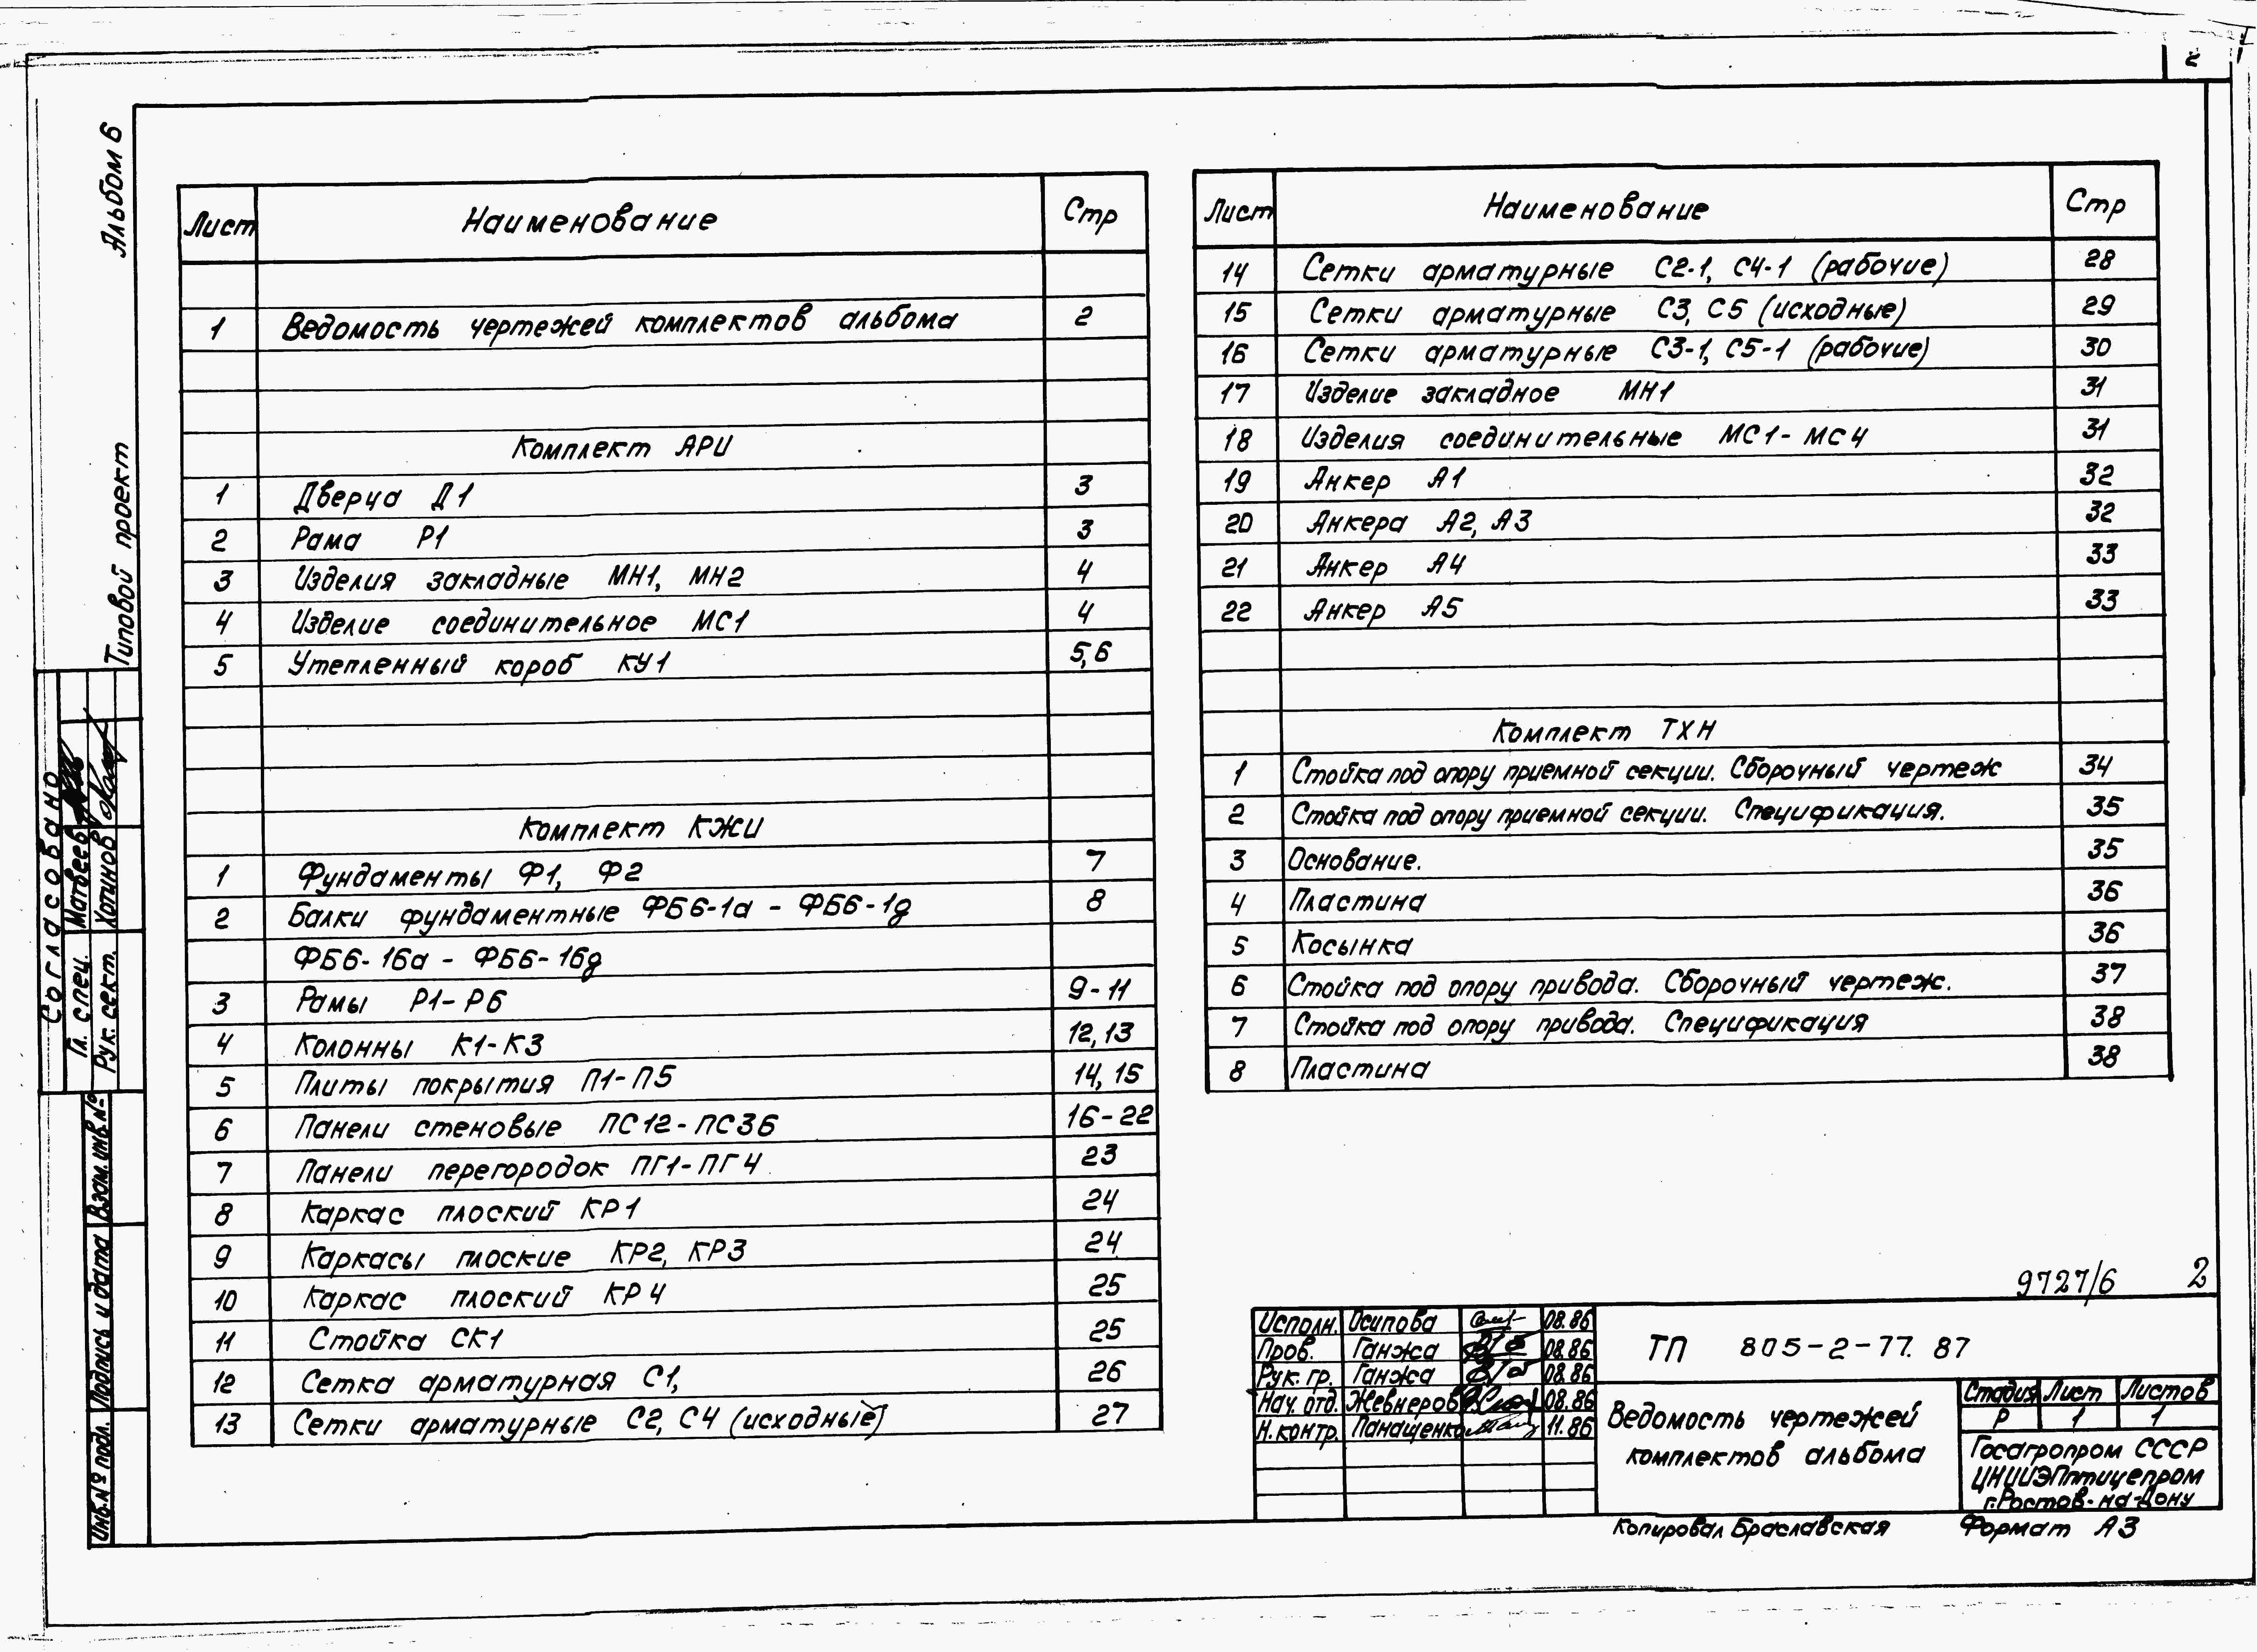 2
Альбом 6
Типовой проект
Согласовано
Гл. спец. Матвеев
Рук. сект. Хотинов
Взам. инв. №
Подпись и дата
Инв. № подл.
Лист Наименование Стр
1 Ведомость чертежей комплектов альбома 2
Комплект АРИ
1 Дверца Д1 3
2 Рама Р1 3
3 Изделия закладные МН1, МН2 4
4 Изделие соединительное МС1 4
5 Утепленный короб КУ1 5,6
Комплект КЖИ
1 Фундаменты Ф1, Ф2 7
2 Балки фундаментные ФБ6-1а - ФБ6-1д 8
ФБ6-16а - ФБ6-16д
3 Рамы Р1-Р6 9-11
4 Колонны К1-К3 12,13
5 Плиты покрытия П1-П5 14,15
6 Панели стеновые ПС12-ПС36 16-22
7 Панели перегородок ПГ1-ПГ4 23
8 Каркас плоский КР1 24
9 Каркасы плоские КР2, КР3 24
10 Каркас плоский КР4 25
11 Стойка СК1 25
12 Сетка арматурная С1, 26
13 Сетки арматурные С2, С4 (исходные) 27
Лист Наименование Стр
14 Сетки арматурные С2-1, С4-1 (рабочие) 28
15 Сетки арматурные С3, С5 (исходные) 29
16 Сетки арматурные С3-1, С5-1 (рабочие) 30
17 Изделие закладное МН1 31
18 Изделия соединительные МС1-МС4 31
19 Анкер А1 32
20 Анкера А2, А3 32
21 Анкер А4 33
22 Анкер А5 33
Комплект ТХН
1 Стойка под опору приемной секции. Сборочный чертеж 34
2 Стойка под опору приемной секции. Спецификация. 35
3 Основание. 35
4 Пластина 36
5 Косынка 36
6 Стойка под опору привода. Сборочный чертеж. 37
7 Стойка под опору привода. Спецификация 38
8 Пластина 38
9727/6 2
Исполн. Осипова 08.86
Пров. Ганжа 08.86
Рук. гр. Ганжа 08.86
Нач. отд. Жевнеров 08.86
Н. контр. Панащенко 11.86
ТП 805-2-77. 87
Ведомость чертежей
комплектов альбома
Стадия Лист Листов
Р 1 1
Госагропром СССР
ЦНИИЭПптицепром
г. Ростов-на-Дону
Копировал Браславская Формат А3